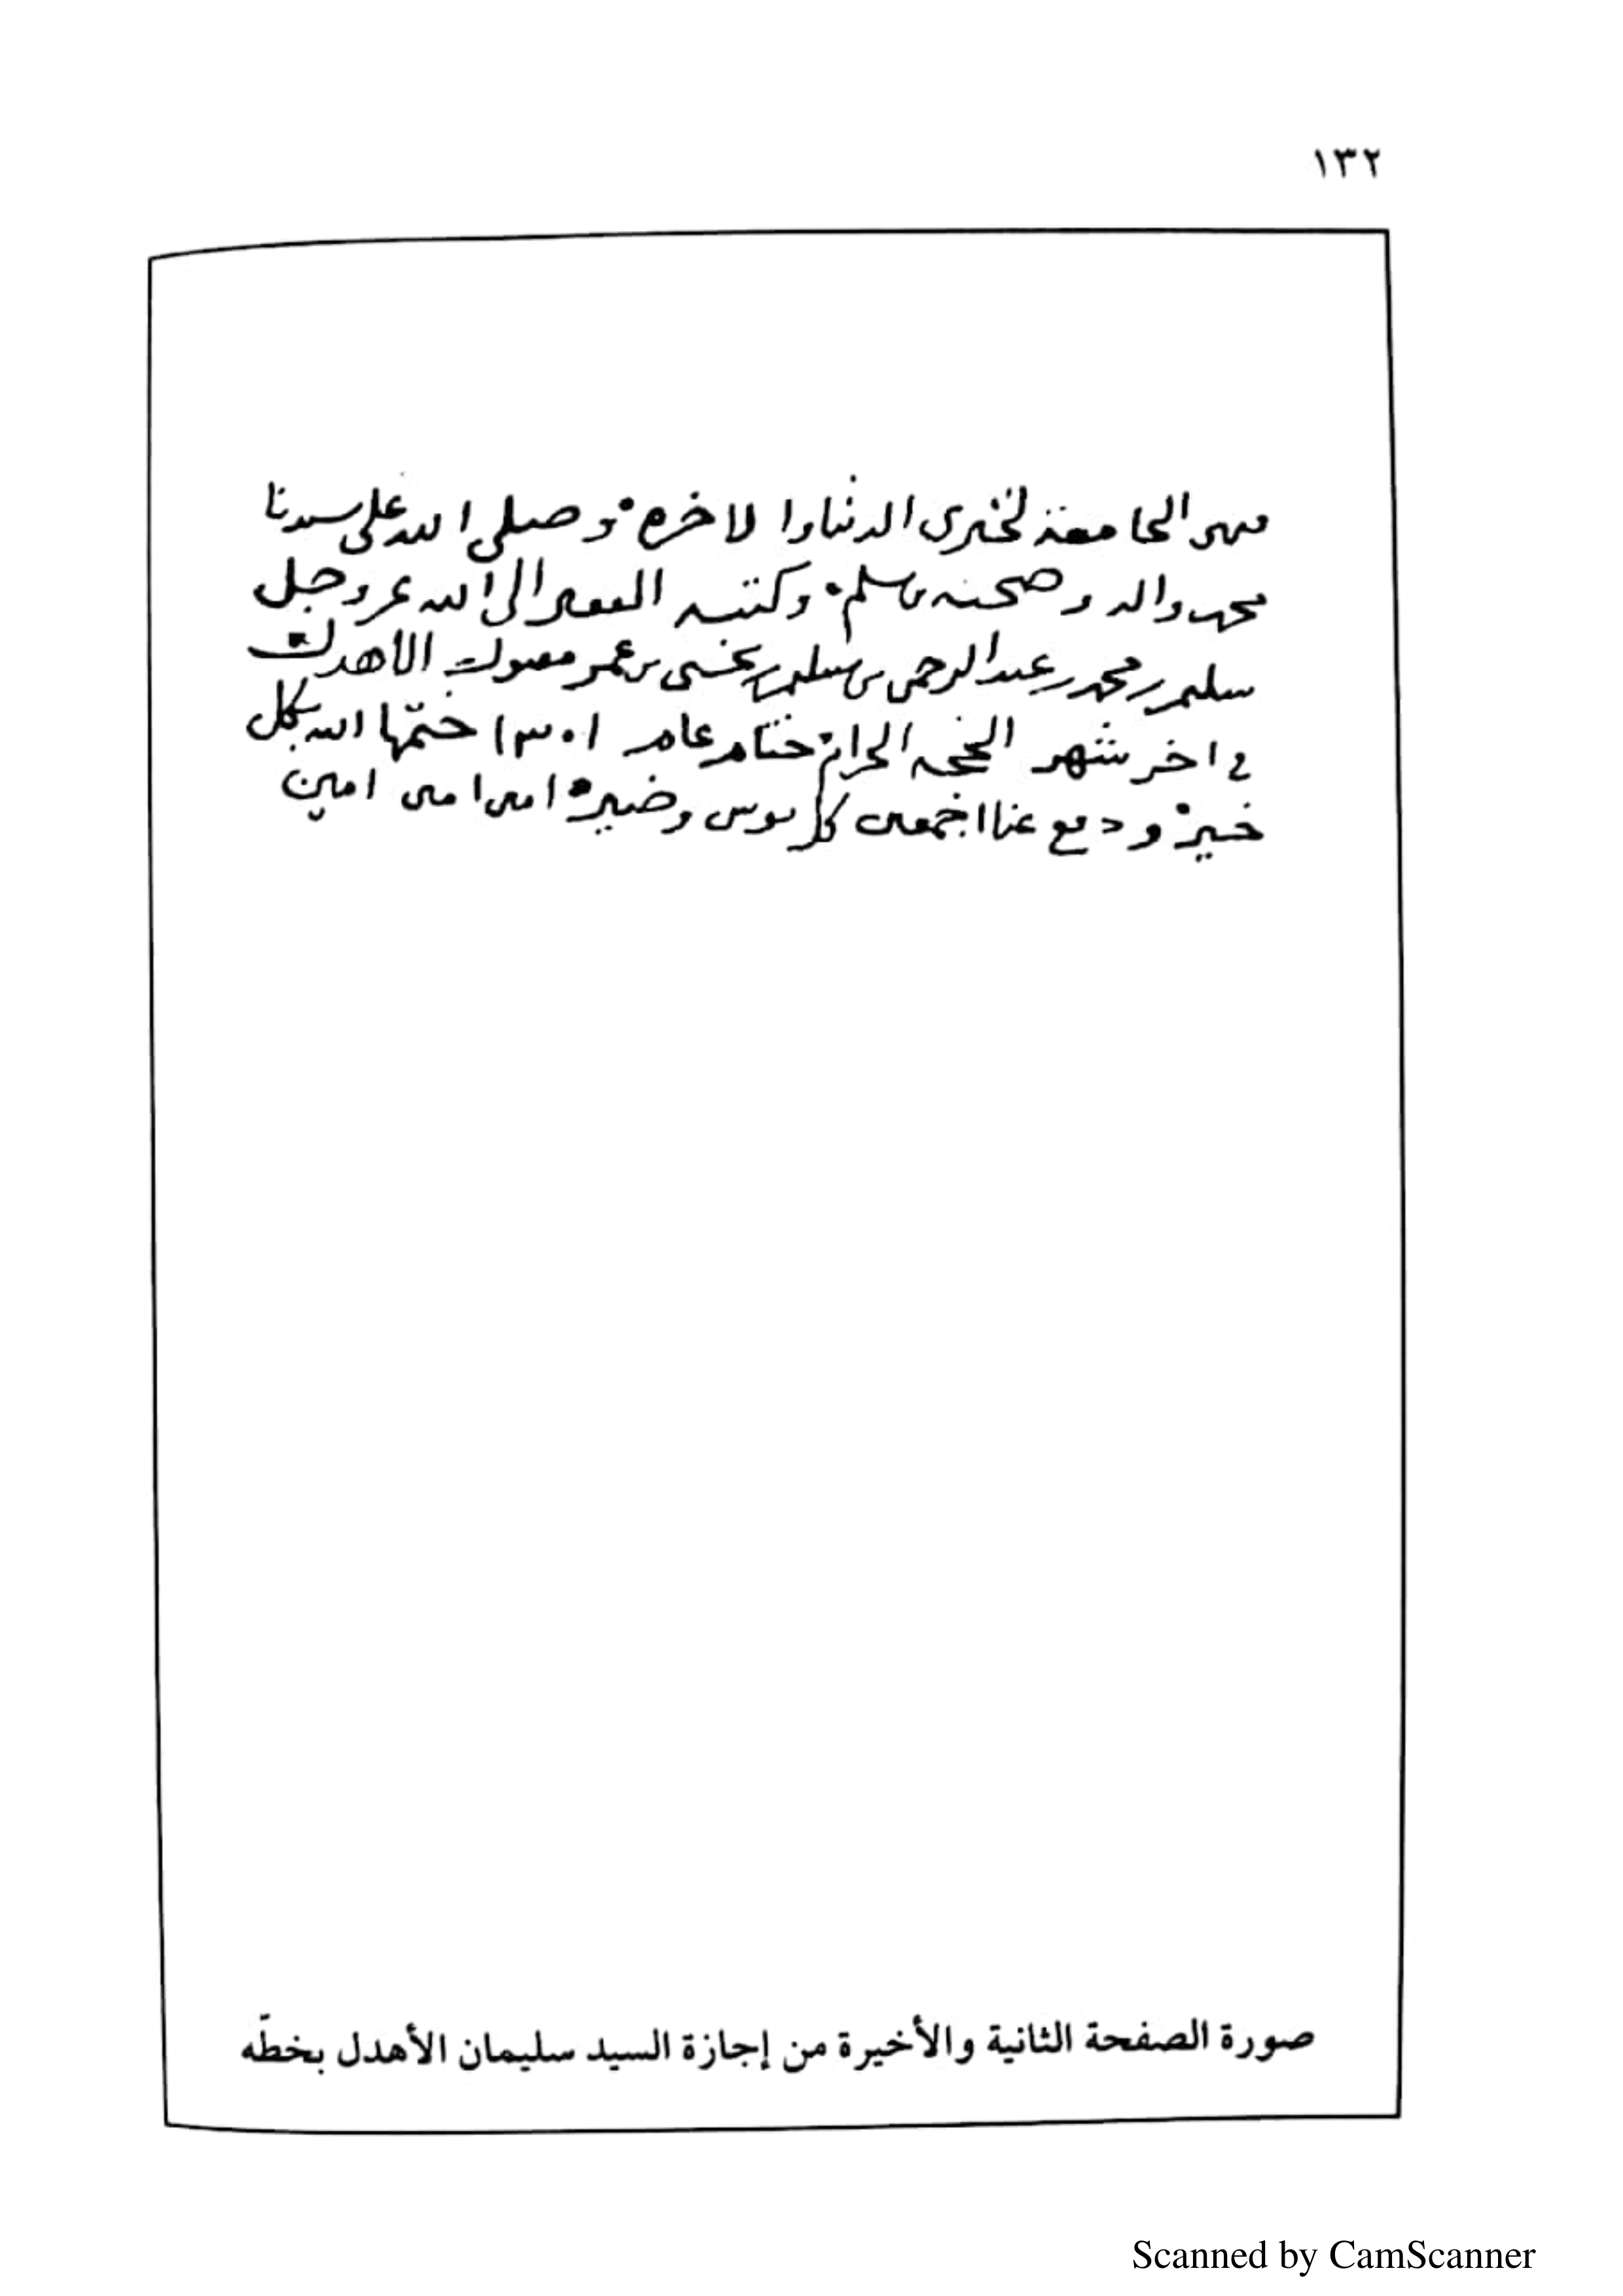 ١٣٢
فهى الجامعة لخيرى الدنيا والاخره وصلى الله على سيدنا
محمد واله وصحبه وسلم وكتبه الفقير الى الله عز وجل
سليمن بن محمد بن عبد الرحمن بن سليمن بن يحيى بن عمر مقبول الاهدل
فى اخر شهر الحجه الحرام ختام عام ١٣٠١ ختمها الله بكل
خير ودفع عنا اجمعين كل بوس وضير امين امين امين
صورة الصفحة الثانية والأخيرة من إجازة السيد سليمان الأهدل بخطّه
Scanned by CamScanner